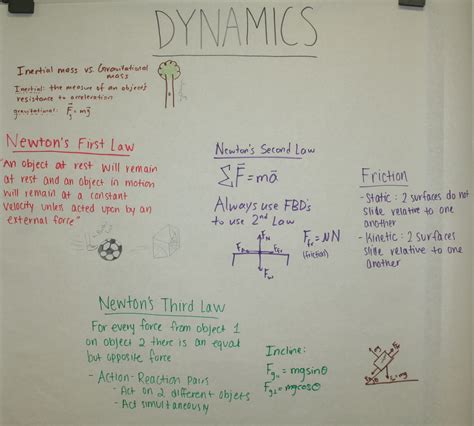 DYNAMICS
Inertial mass vs. Gravitational
mass
Inertial: the measure of an object's
resistance to acceleration
gravitational: F⃗g = mg⃗
Newton's First Law
"An object at rest will remain
at rest and an object in motion
will remain at a constant
velocity unless acted upon by an
external force"
Newton's Second Law
ΣF⃗ = ma⃗
Always use FBD's
to use 2nd Law
FN
Ffr = μN
(friction)
Friction
- Static: 2 surfaces do not
slide relative to one
another
- Kinetic: 2 surfaces
slide relative to one
another
Newton's Third Law
For every force from object 1
on object 2 there is an equal
but opposite force
- Action-Reaction pairs
- Act on 2 different objets
- Act simultaneously
Incline:
Fg∥ = mg sinθ
Fg⊥ = mg cosθ